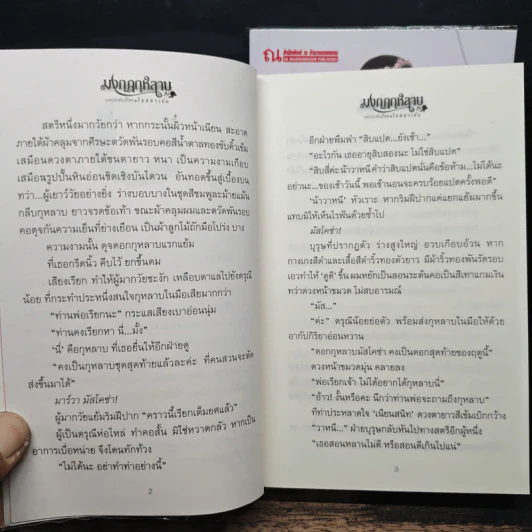 ณ
มงกุฎกุหลาบ
สตรีหนึ่งมากวัยกว่า หากกระนั้นผิวหน้าเนียน สะอาด
ภายใต้ผ้าคลุมจากศีรษะตวัดพันรอบคอสีน้ำตาลทองขับคิ้วเข้ม
เสมือนดวงตาภายใต้ขนตายาว หนา เป็นความงามเกือบ
เสมือนรูปปั้นหินอ่อนเชิดเชิงบันไดวน อันทอดขึ้นสู่เบื้องบน
ทว่า...ผู้เยาว์วัยอย่างยิ่ง ร่างบอบบางในชุดสีชมพูละม้ายแม้น
กลีบกุหลาบ ยาวจรดข้อเท้า ขณะผ้าคลุมผมและตวัดพันรอบ
คอดุจกันความเย็นที่ย่างเยือน เป็นผ้าลูกไม้ถักมือโปร่ง บาง
ความงามนั้น ดุจดอกกุหลาบแรกแย้ม
ที่เธอกรีดนิ้ว คีบไว้ ยกขึ้นดม
เสียงเรียก ทำให้ผู้มากวัยชะงัก เหลือบตาแลไปยังดรุณี
น้อย ที่กระทำประหนึ่งสนใจกุหลาบในมือเสียมากกว่า
“ท่านพ่อเรียกนะ” กระแสเสียงเบาอ่อนนุ่ม
“ท่านคงเรียกหา นี่...มั้ง”
‘นี่’ คือกุหลาบ ที่เธอยื่นให้อีกฝ่ายดู
“คงเป็นกุหลาบชุดสุดท้ายแล้วละค่ะ ที่คนสวนจะตัด
ส่งขึ้นมาได้”
มาร์วา มัสโคซ่า!
ผู้มากวัยแย้มริมฝีปาก “คราวนี้เรียกเต็มยศแล้ว”
ผู้เป็นดรุณีห่อไหล่ ทำคอสั้น มิใช่หวาดกลัว หากเป็น
อาการเบื่อหน่าย จึงโดนทักท้วง
“ไม่ได้นะ อย่าทำท่าอย่างนี้”
2
มงกุฎกุหลาบ
อีกฝ่ายพึมพำ “สิบแปด...ยังเช้า...”
“อะไรกัน เธออายุสิบสองนะ ไม่ใช่สิบแปด”
“สิบสี่ค่ะน้าวาหนีคำว่าสิบแปดนั่นคือข้อห้าม...ไม่ได้นะ
อย่านะ...ของเช้าวันนี้ พอเช้านอนจะครบร้อยแปดครั้งพอดี”
“น้าวาหนี” หัวเราะ หากริมฝีปากแค่แยกแย้มมากขึ้น
แทบมิให้เห็นไรฟันด้วยซ้ำไป
มัสโคซ่า!
บุรุษที่ปรากฏตัว ร่างสูงใหญ่ อวบเกือบอ้วน หาก
กางเกงสีดำและเสื้อสีดำริ้วทองตัวยาว มีผ้าริ้วทองพันรัดรอบ
เอวทำให้ ‘ดูดี’ ขึ้น ผมหยักเป็นลอนระต้นคอเป็นสีเทาแกมเงิน
ทว่าดวงหน้าขมวด ไม่สบอารมณ์
“มัส...”
“ค่ะ” ดรุณีน้อยย่อตัว พร้อมส่งกุหลาบในมือให้ด้วย
อากัปกิริยาอ่อนหวาน
“ดอกกุหลาบมัสโคซ่า คงเป็นดอกสุดท้ายของฤดูนี้”
ดวงหน้าขมวดมุ่น คลายลง
“พ่อเรียกเจ้า ไม่ได้อยากได้กุหลาบนี่”
“อ้าว! งั้นหรือคะ นึกว่าท่านพ่อจะถามถึงกุหลาบ”
ทีท่าประหลาดใจ ‘เนียนสนิท’ ดวงตายาวสีเข้มเบิกกว้าง
“วาหนี...” ฝ่ายบุรุษกลับหันไปทางสตรีอีกผู้หนึ่ง
“เธอสอนหลานไม่ดี หรือสอนดีเกินไปแน่”
3